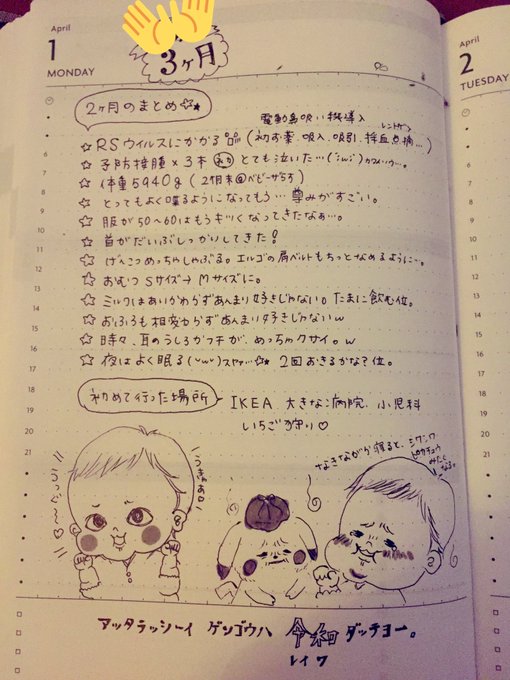 April
1
MONDAY
3ヶ月
April
2
TUESDAY
2ヶ月のまとめ☆
電動鼻吸い機導入
レントゲン
☆ RSウイルスにかかる (初す薬、吸入、吸引、採血点滴…)
☆ 予防接種×3本 初 とても泣いた…(;ω;)カワイソウ…。
☆ 体重5940g (2ヶ月末@ベビーザらす)
☆ とってもよく喋るようになってもう…尊みがすごい。
☆ 服が50〜60はもうキツくなってきたなぁ…。
☆ 首がだいぶしっかりしてきた!
☆ げんこつめっちゃしゃぶる。エルゴの肩ベルトもちっとなめるように…。
☆ おむつ Sサイズ→Mサイズに。
☆ ミルクはあいかわらずあんまり好きじゃない。たまに飲む位。
☆ おふろも相変わらずあんまり好きじゃないw
☆ 時々、耳のうしろかフチが、めっちゃクサイ。w
☆ 夜はよく眠る(˘ω˘)スヤァ…☆ 2回おきるかな?位。
初めて行った場所
IKEA 大きな病院 小児科
いちご狩り♡
なきながら寝ると、シワシワ
ピカチュウ
みたく
なる。
うきゃあ♡
アッタラッシーイ ゲンゴウハ 令和 ダッチヨー。
レイワ